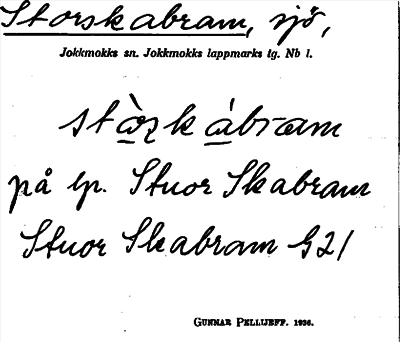 Storskabram, sjö,
Jokkmokks sn. Jokkmokks lappmarks tg. Nb l.
stò̱rsk á̱bram
på lp. Stuor Skabram
Stuor Skabram G21
GUNNAR PELLIJEFF. 1936.